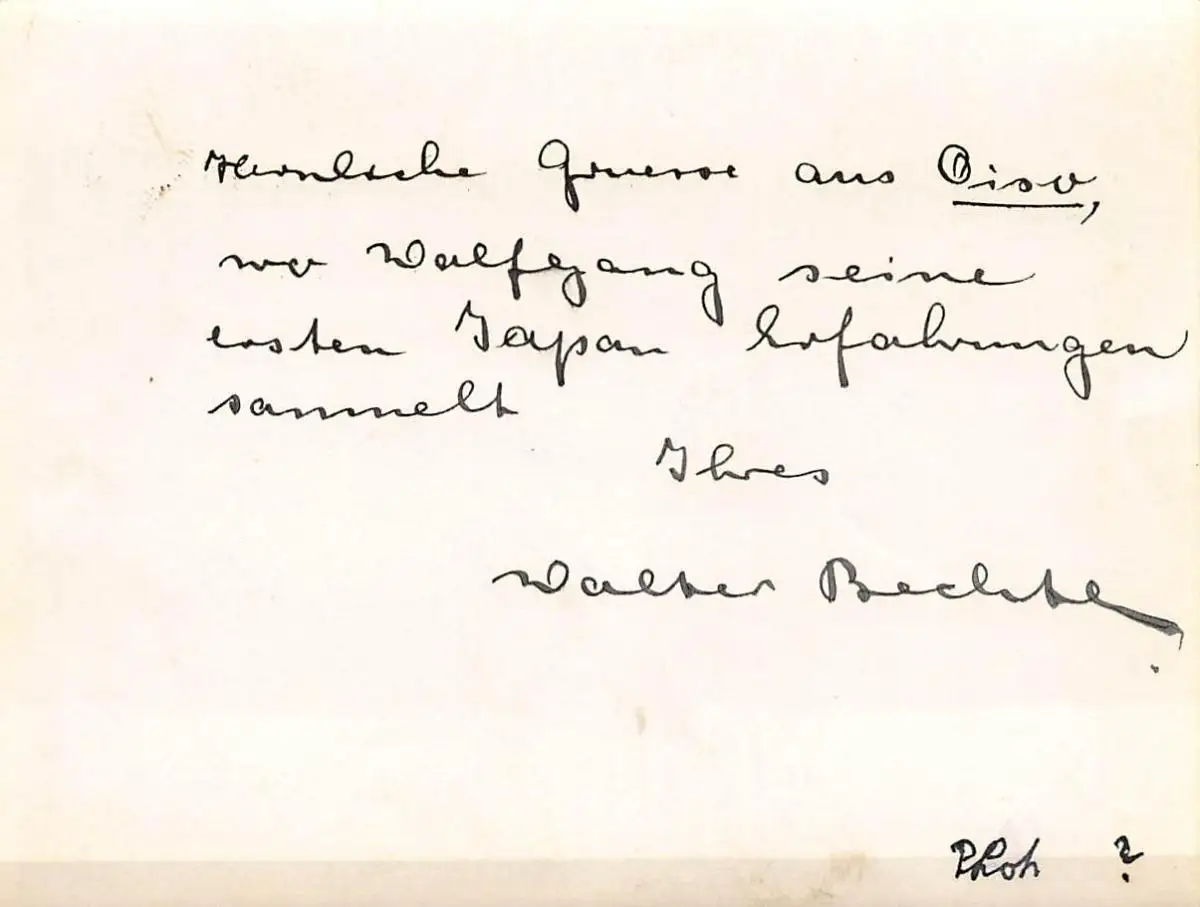 Herzliche Gruesse aus Oiso,
wo Wolfgang seine
ersten Japan Erfahrungen
sammelt
Ihres
Walter Bechtel
?